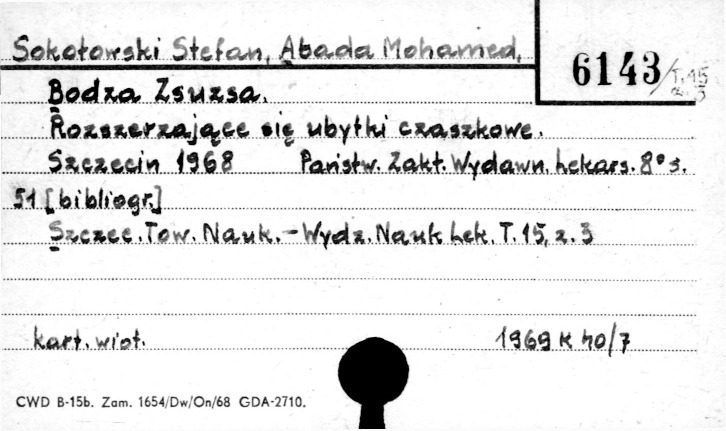 Sokołowski Stefan, Abada Mohamed,
6143/T.15
z.3
Bodza Zsuzsa.
Rozszerzające się ubytki czaszkowe.
Szczecin 1968 Państw. Zakt. Wydawn. Lekars. 8° s.
51 [bibliogr.]
Szczec. Tow. Nauk. - Wydz. Nauk Lek. T. 15, z. 3
kart. wiot. 1969 K 40/7
CWD B-15b. Zam. 1654/Dw/On/68 GDA-2710.